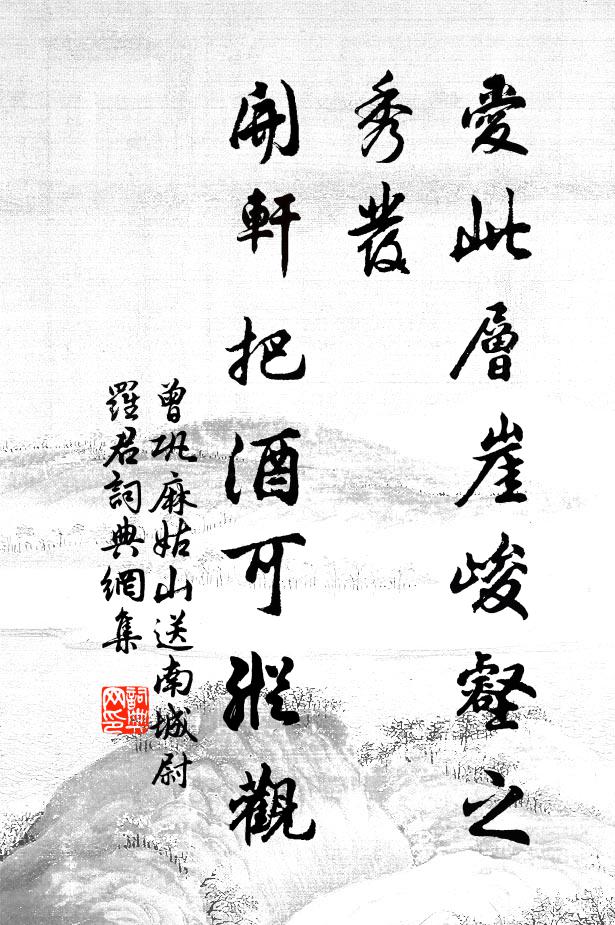 愛此層崖峻壑之
秀發
開軒把酒可縱觀
曾巩麻姑山送南城尉
羅君詞典網集
詞典
网印